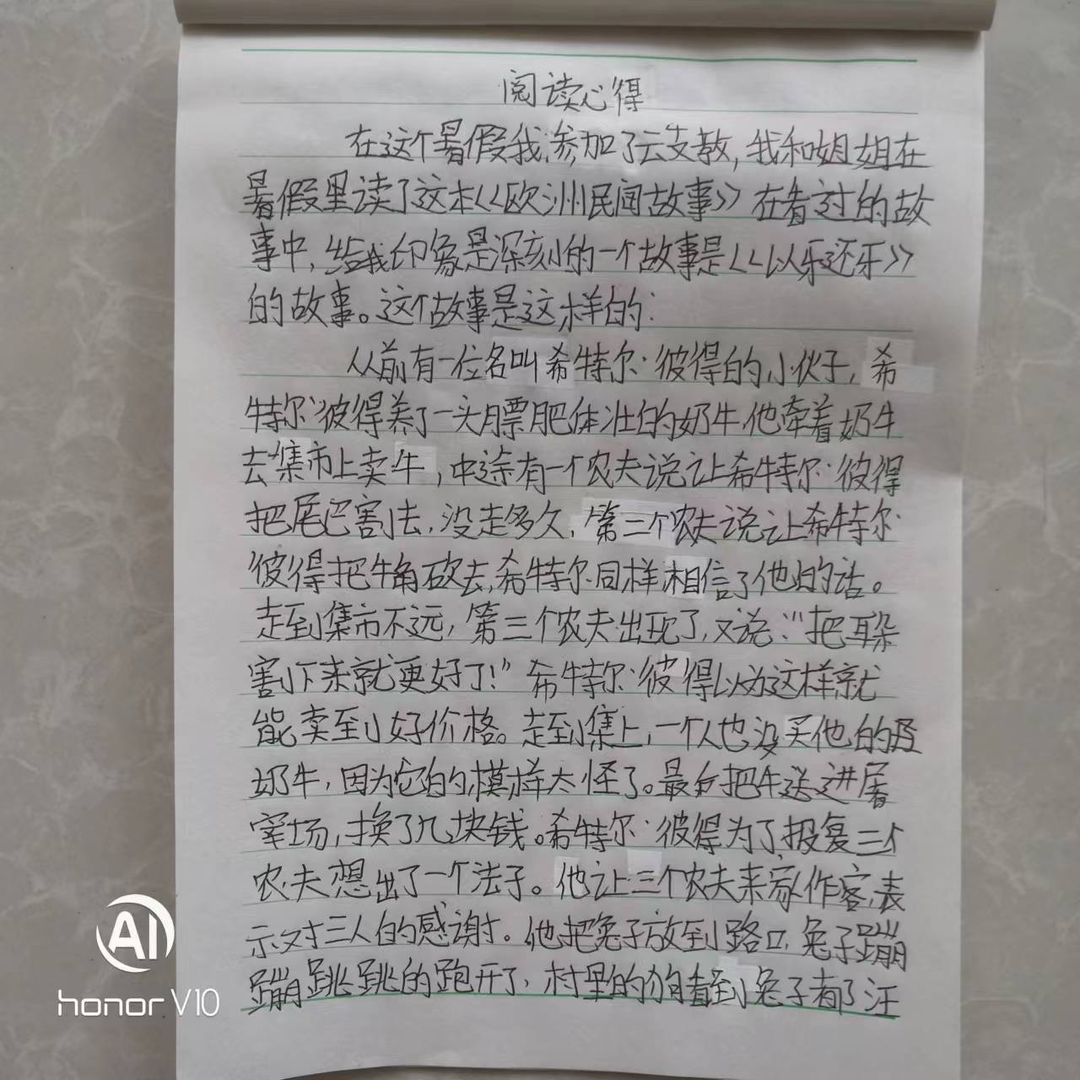 阅读心得
在这个暑假我参加了云支教,我和姐姐在
暑假里读了这本《欧洲民间故事》在看过的故
事中,给我印象是深刻的一个故事是《以乐还乐》
的故事。这个故事是这样的:
从前有一位名叫希特尔·彼得的小伙子,希
特尔·彼得养了一头膘肥体壮的奶牛,他牵着奶牛
去集市上卖牛,中途有一个农夫说让希特尔·彼得
把尾巴割去,没走多久,第二个农夫说让希特尔·
彼得把牛角砍去,希特尔同样相信了他的话。
走到集市不远,第三个农夫出现了,又说:"把耳朵
割下来就更好了!"希特尔·彼得以为这样就
能卖到好价格。走到集上,一个人也没买他的
奶牛,因为它的模样太怪了。最后把牛送进屠
宰场,换了几块钱。希特尔·彼得为了报复三个
农夫想出了一个法子。他让三个农夫来家作客,表
示对三人的感谢。他把兔子放到路口,兔子蹦
蹦跳跳的跑开了,村里的狗看到兔子都了汪
AI
honor V10